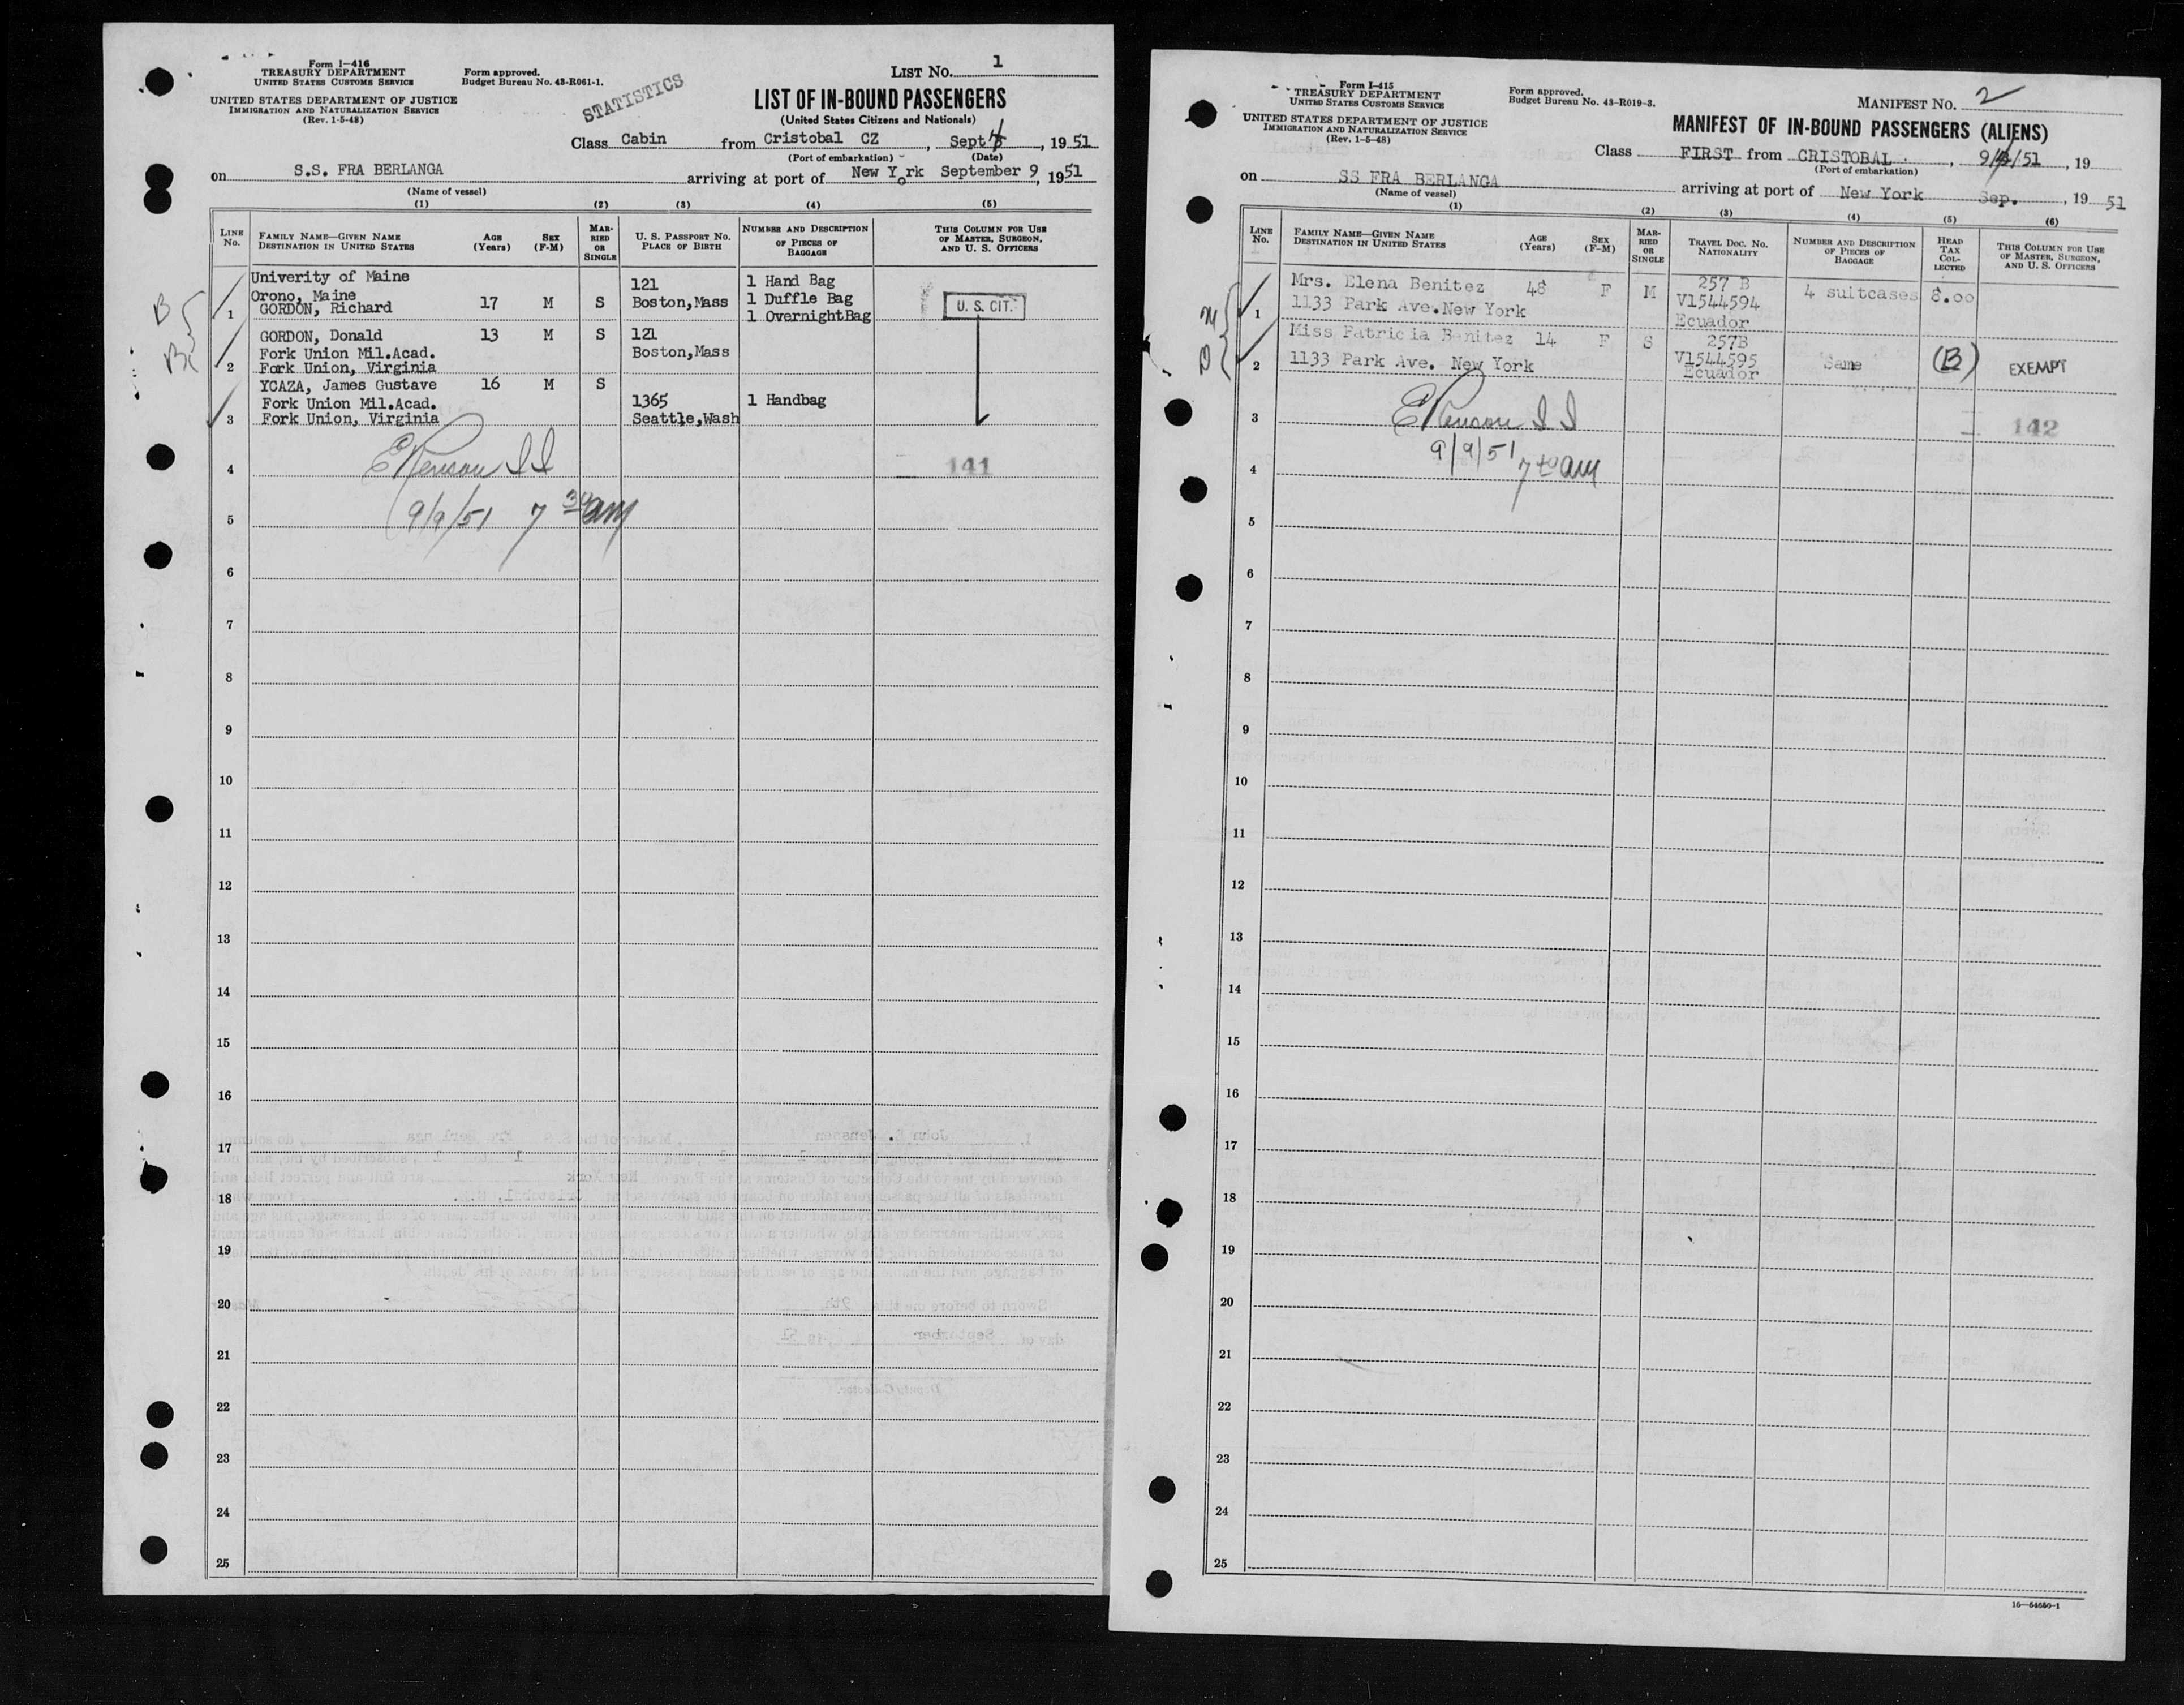 Form I-416
TREASURY DEPARTMENT
UNITED STATES CUSTOMS SERVICE
UNITED STATES DEPARTMENT OF JUSTICE
IMMIGRATION AND NATURALIZATION SERVICE
(Rev. 1-5-48)
Form approved.
Budget Bureau No. 43-R061-1.
STATISTICS
LIST NO. 1
LIST OF IN-BOUND PASSENGERS
(United States Citizens and Nationals)
Class Cabin from Cristobal CZ , Sept , 19 51
(Port of embarkation) (Date)
on S.S. FRA BERLANGA arriving at port of New York September 9 , 19 51
(Name of vessel)
(1) (2) (3) (4) (5)
LINE No. FAMILY NAME—GIVEN NAME DESTINATION IN UNITED STATES AGE (Years) SEX (F-M) MARRIED OR SINGLE U. S. PASSPORT NO. PLACE OF BIRTH NUMBER AND DESCRIPTION OF PIECES OF BAGGAGE THIS COLUMN FOR USE OF MASTER, SURGEON, AND U. S. OFFICERS
Univerity of Maine 121 1 Hand Bag
Orono, Maine
1 GORDON, Richard 17 M S Boston,Mass 1 Duffle Bag U. S. CIT.
1 OvernightBag
GORDON, Donald 13 M S 121
Fork Union Mil.Acad. Boston,Mass
2 Fork Union, Virginia
YCAZA, James Gustave 16 M S
Fork Union Mil.Acad. 1365 1 Handbag
3 Fork Union, Virginia Seattle,Wash
4 141
9/9/51 7 30 am
5
6
7
8
9
10
11
12
13
14
15
16
17
18
19
20
21
22
23
24
25
Form I-415
TREASURY DEPARTMENT
UNITED STATES CUSTOMS SERVICE
UNITED STATES DEPARTMENT OF JUSTICE
IMMIGRATION AND NATURALIZATION SERVICE
(Rev. 1-5-48)
Form approved.
Budget Bureau No. 43-R019-3.
MANIFEST NO. 2
MANIFEST OF IN-BOUND PASSENGERS (ALIENS)
Class FIRST from CRISTOBAL , /51 , 19
(Port of embarkation)
on SS FRA BERLANGA arriving at port of New York Sep. , 19 51
(Name of vessel)
(1) (2) (3) (4) (5) (6)
LINE No. FAMILY NAME—GIVEN NAME DESTINATION IN UNITED STATES AGE (Years) SEX (F-M) MARRIED OR SINGLE TRAVEL DOC. NO. NATIONALITY NUMBER AND DESCRIPTION OF PIECES OF BAGGAGE HEAD TAX COLLECTED THIS COLUMN FOR USE OF MASTER, SURGEON, AND U. S. OFFICERS
Mrs. Elena Benitez 48 F M 257 B 4 suitcases 8.00
1 1133 Park Ave.New York V1544594
Ecuador
Miss Patricia Benitez 14 F S 257B
2 1133 Park Ave. New York V1544595 Same (B) EXEMPT
Ecuador
3 142
9/9/51
4 am
5
6
7
8
9
10
11
12
13
14
15
16
17
18
19
20
21
22
23
24
25
16—54650-1